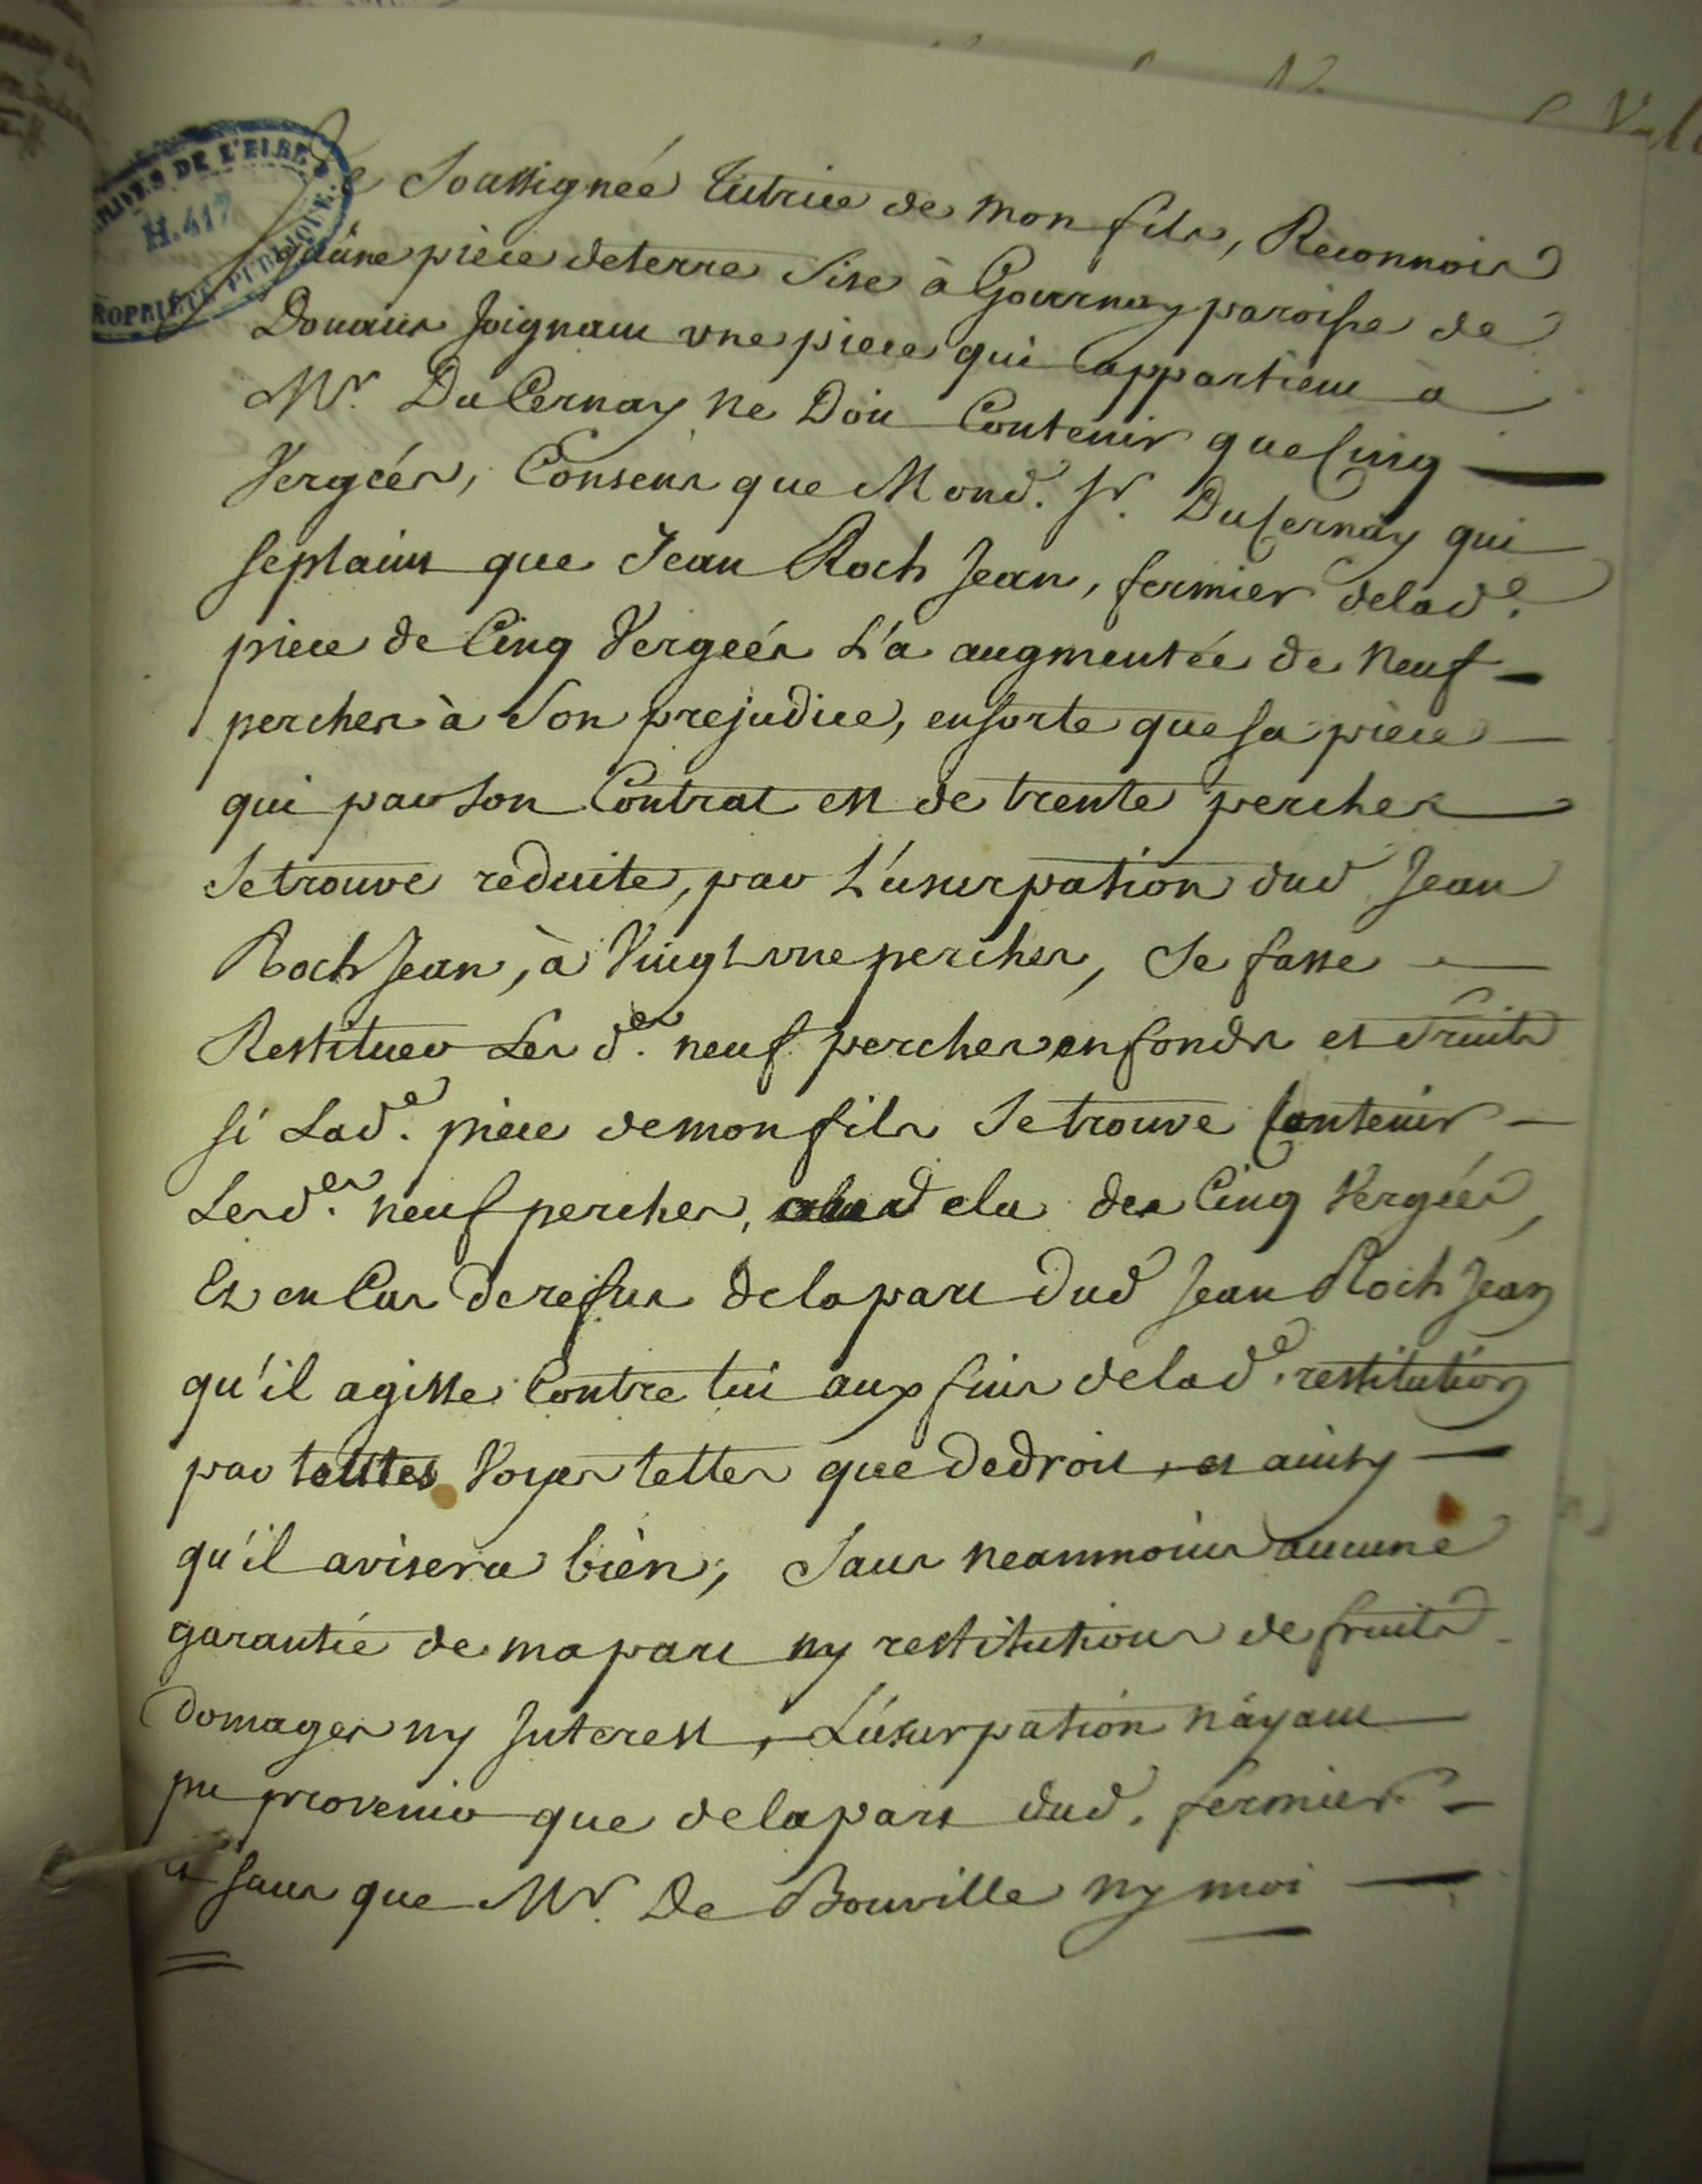 ARCHIVES DE L'EURE
H. 417
PROPRIÉTÉ PUBLIQUE
Je Soussignée tutrice de mon fils, Reconnois
qu'une pièce de terre Sise à Gournay paroisse de
Douains joignant une piece qui appartient à
Mr. Du Cernay ne Doit Contenir que Cinq
Vergées, Consens que Mond. Sr. Du Cernay qui
se plaint que Jean Roch Jean, fermier de lad.e
piece de Cinq Vergées L'a augmentée de neuf
perches à Son prejudice, ensorte que sa pièce
qui par son Contrat est de trente perches
Se trouve reduite, par L'usurpation dud Jean
Roch Jean, à Vingt une perches, Se fasse
Restituer Les d.es neuf perches en fonds et fruits
si Lad.e pièce de mon fils Se trouve Contenir
Lesd.es neuf perches, au dela des Cinq Vergées,
Et en Cas de refus de la part Dud Jean Roch Jean
qu'il agisse Contre lui aux fins de lad.e restitution
par toutes Voyes telles que de droit, et ainsy
qu'il avisera bien, Sans neanmoins aucune
garantie de ma part ny restitutions de fruits
Domages ny Interest, L'usurpation n'ayant
pu provenir que de la part dud. fermier
et sans que Mr. De Bouville ny moi